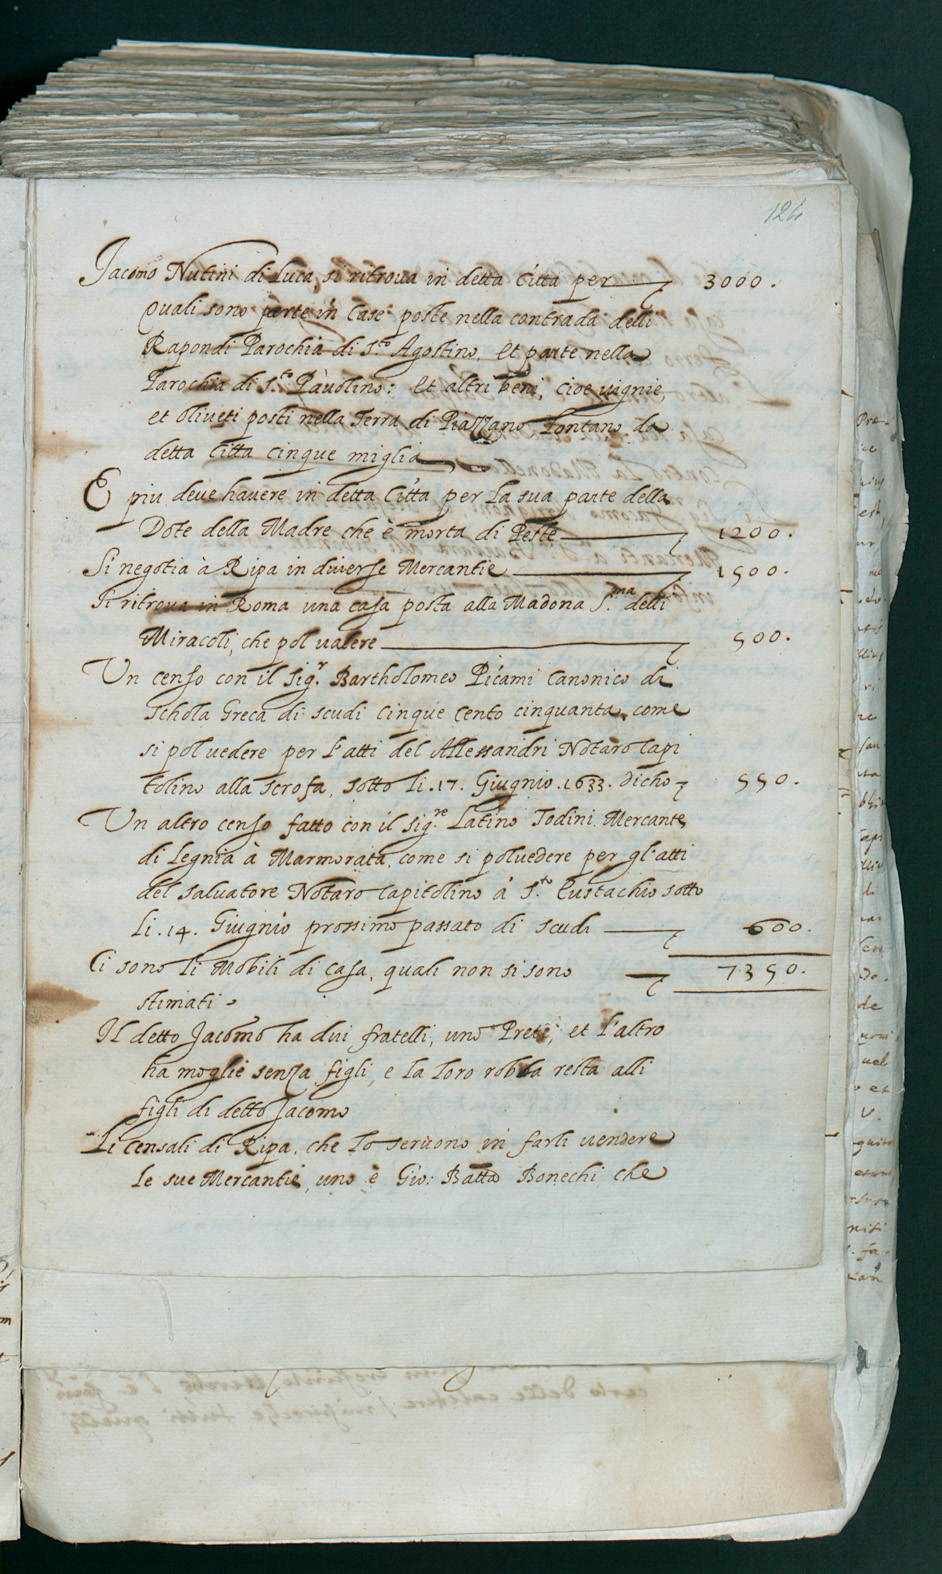 124
Jacomo Nutini di Luca, si ritroua in detta Citta per 3000.
quali sono parte in Case poste nella contrada delli
Rapondi Parochia di S.to Agostino. et parte nella
Parochia di S.to Pauolino: et altri beni, cioe vignie,
et oliueti posti nella Terra di Piazzano lontano da
detta Citta cinque miglia
E piu deve havere in detta Citta per la sua parte della
Dote della Madre che è morta di Peste 1200.
Si negotia à Ripa in diverse Mercantie 1500.
Si ritroua in Roma una casa posta alla Madona S.ma delli
Miracoli, che pol valere 500.
Un censo con il Sig.r Bartholomeo Picami Canonico di
Schola Greca di scudi cinque cento cinquanta, come
si pol vedere per l'atti del Allessandri Notaro Capi
tolino alla Scrofa, sotto li .17. Giugnio .1633. dicho 550.
Un altro censo fatto con il Sig.re Latino Todini Mercante
di Legnia à Marmorata, come si polvedere per gl'atti
del Salvatore Notaro Capitolino à S.to Eustachio sotto
li .14. Giugnio prossimo passato di scudi 600.
Ci sono li Mobili di casa, quali non si sono 7350.
stimati.
Il detto Jacomo ha dui fratelli, uno Prete, et l'altro
ha moglie senza figli, e la loro robba resta alli
figli di detto Jacomo
Li censali di Ripa, che lo seruono in farli vendere
le sue Mercantie, uno è Gio: Batta Bonechi che